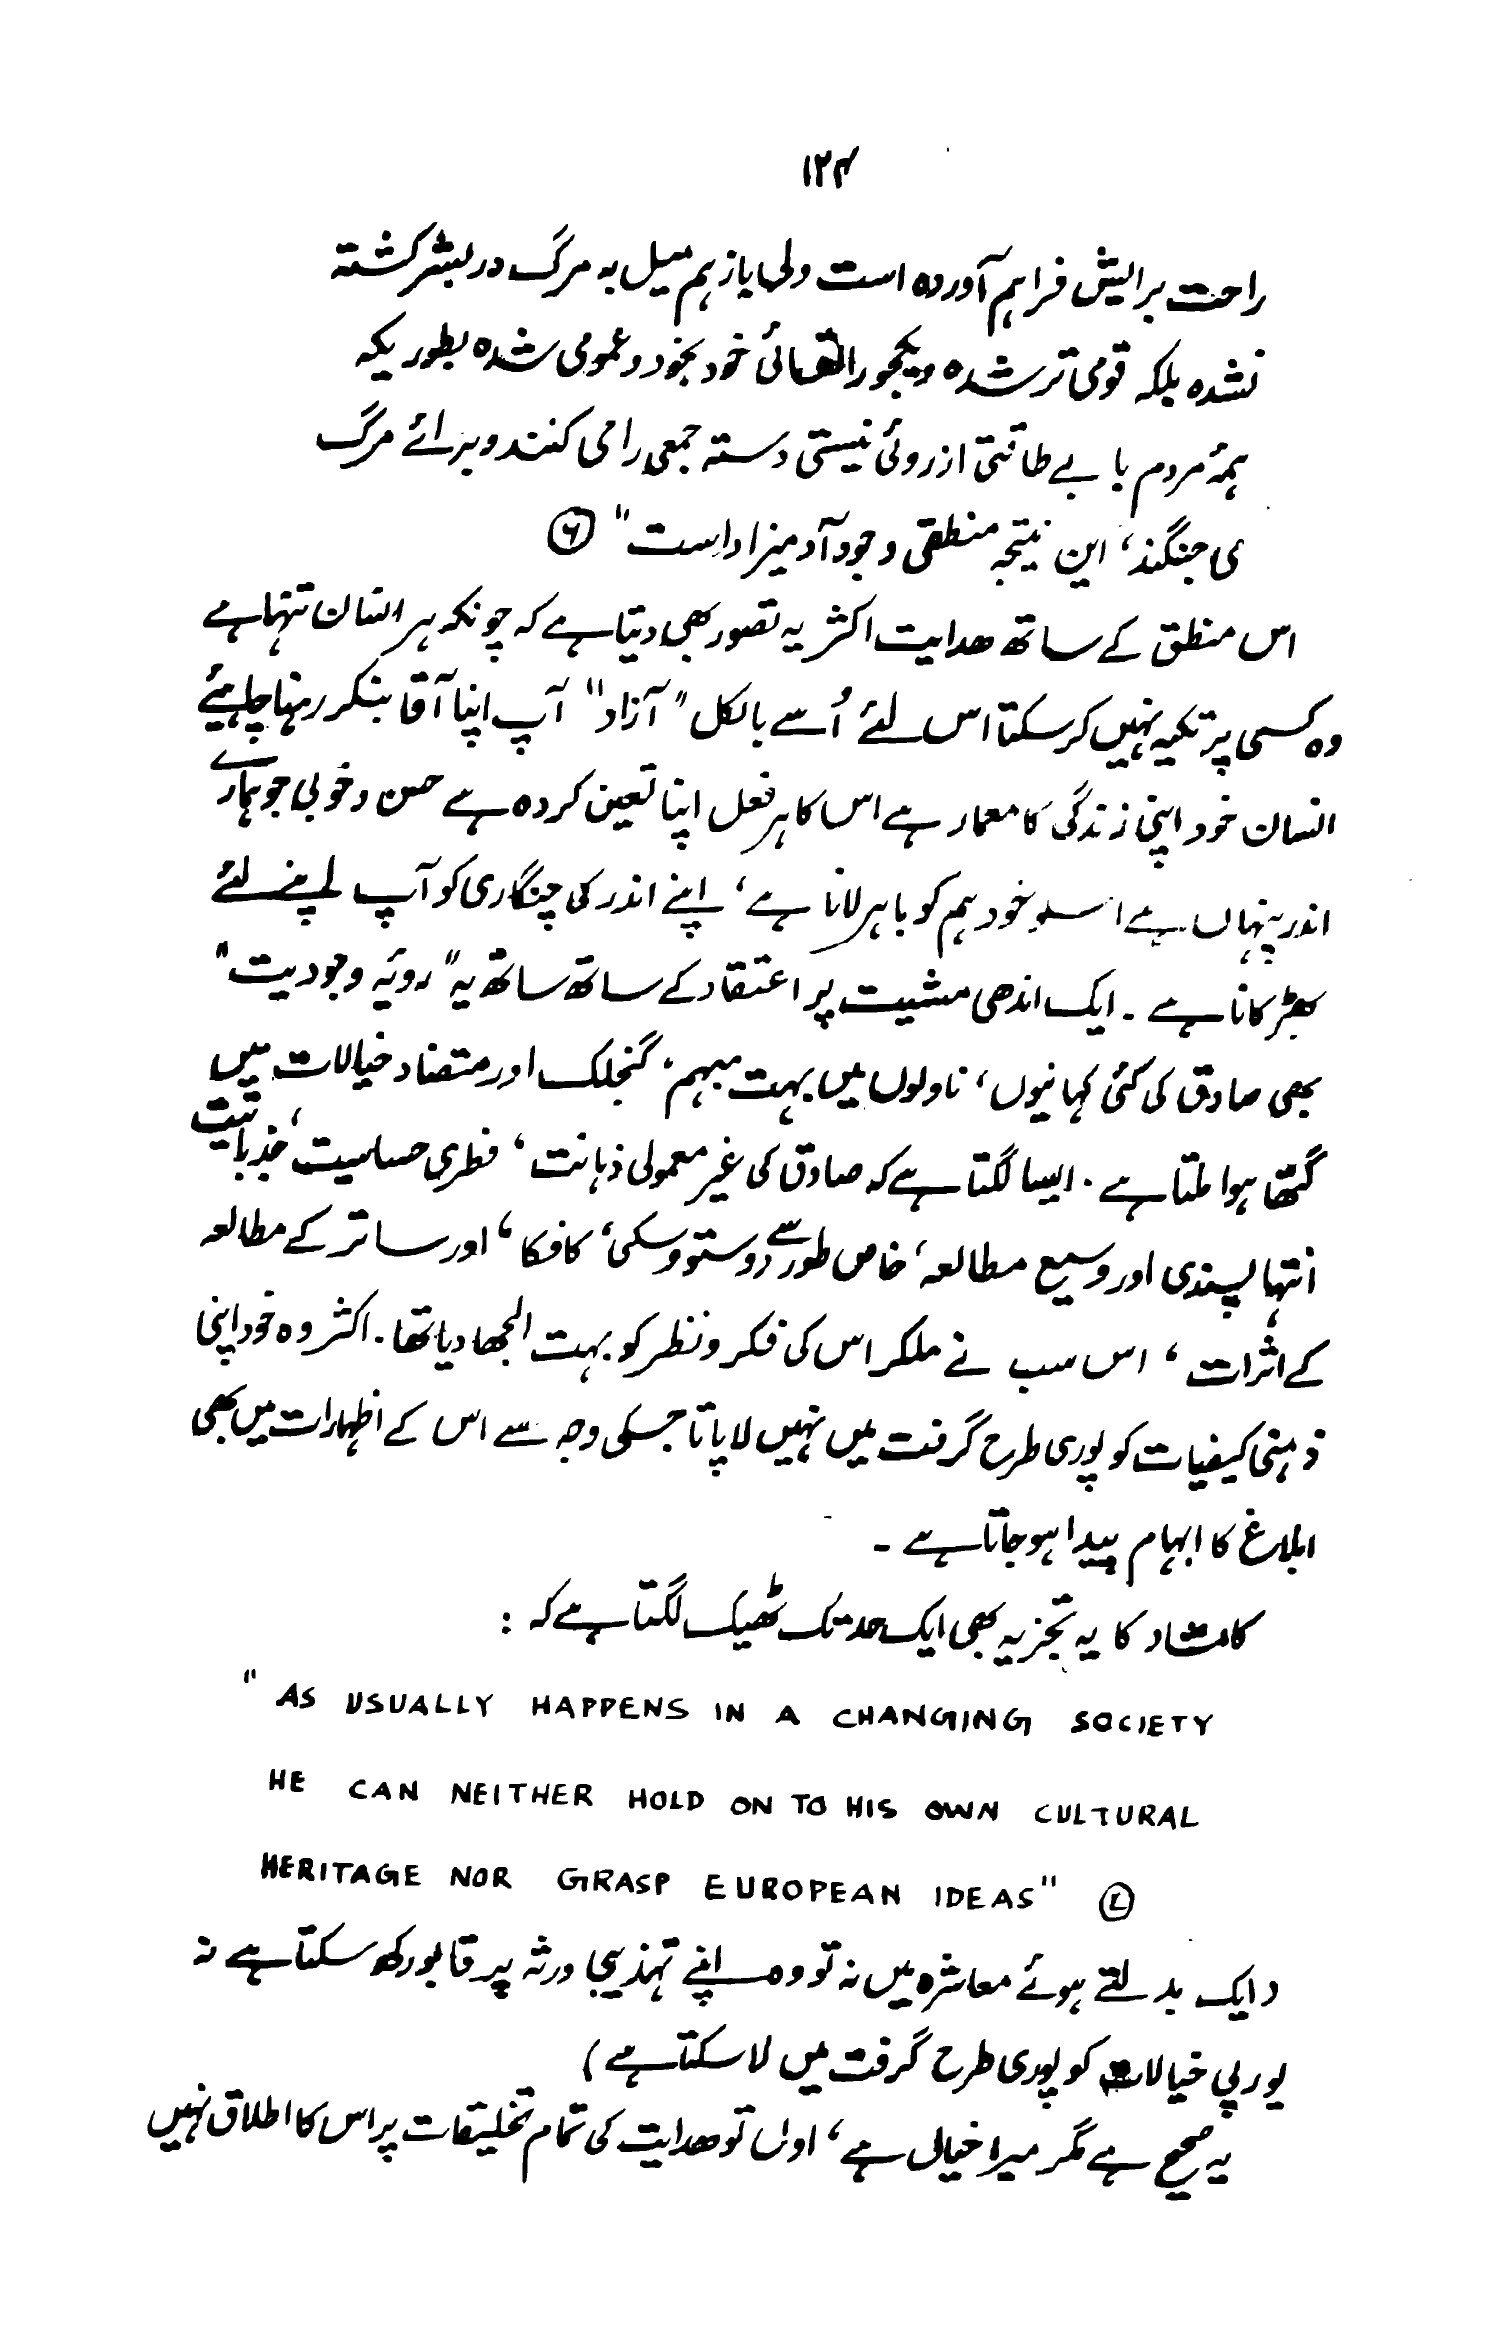 ۱۲۴
راحت برایش فراہم آوردہ است ولی باز ہم میل بہ مرگ در بشر کشتہ
نشدہ بلکہ قومی تر شدہ و یکجور التھائی خود بخود و عمومی شدہ بطوریکہ
ہمۂ مردم با بے طاقتی از روئی نیستی دستہ جمعی را می کنند و برائے مرگ
می جنگند، این نتیجہ منطقی وجود آدمیزاد است" ⑥
اس منطق کے ساتھ ھدایت اکثر یہ تصور بھی دیتا ہے کہ چونکہ ہر انسان تنہا ہے
وہ کسی پر تکیہ نہیں کر سکتا اس لئے اُسے بالکل "آزاد" آپ اپنا آقا بنکر رہنا چاہیئے
انسان خود اپنی زندگی کا معمار ہے اس کا ہر فعل اپنا تعین کردہ ہے حسن و خوبی جو ہمارے
اندر پنہاں ہے اسکو خود ہم کو باہر لانا ہے، اپنے اندر کی چنگاری کو آپ اپنے لئے
بھڑکانا ہے ۔ ایک اندھی مشیت پر اعتقاد کے ساتھ ساتھ یہ "رویۂ وجودیت"
بھی صادق کی کئی کہانیوں، ناولوں میں بہت مبہم، گنجلک اور متضاد خیالات میں
گتھا ہوا ملتا ہے ۔ ایسا لگتا ہے کہ صادق کی غیر معمولی ذہانت، فطری حساسیت، جذباتیت،
انتہا پسندی اور وسیع مطالعہ، خاص طور سے دوستووسکی، کافکا، اور ساتر کے مطالعہ
کے اثرات، اس سب نے ملکر اس کی فکر و نظر کو بہت الجھا دیا تھا ۔ اکثر وہ خود اپنی
ذہنی کیفیات کو پوری طرح گرفت میں نہیں لا پاتا جسکی وجہ سے اس کے اظہارات میں بھی
ابلاغ کا ابہام پیدا ہو جاتا ہے ۔
کامشاد کا یہ تجزیہ بھی ایک حد تک ٹھیک لگتا ہے کہ :
" AS USUALLY HAPPENS IN A CHANGING SOCIETY
HE CAN NEITHER HOLD ON TO HIS OWN CULTURAL
HERITAGE NOR GRASP EUROPEAN IDEAS" ⑦
(ایک بدلتے ہوئے معاشرہ میں نہ تو وہ اپنے تہذیبی ورثہ پر قابو رکھ سکتا ہے نہ
یورپی خیالات کو پوری طرح گرفت میں لا سکتا ہے)
یہ صحیح ہے مگر میرا خیال ہے، اول تو ھدایت کی تمام تخلیقات پر اس کا اطلاق نہیں